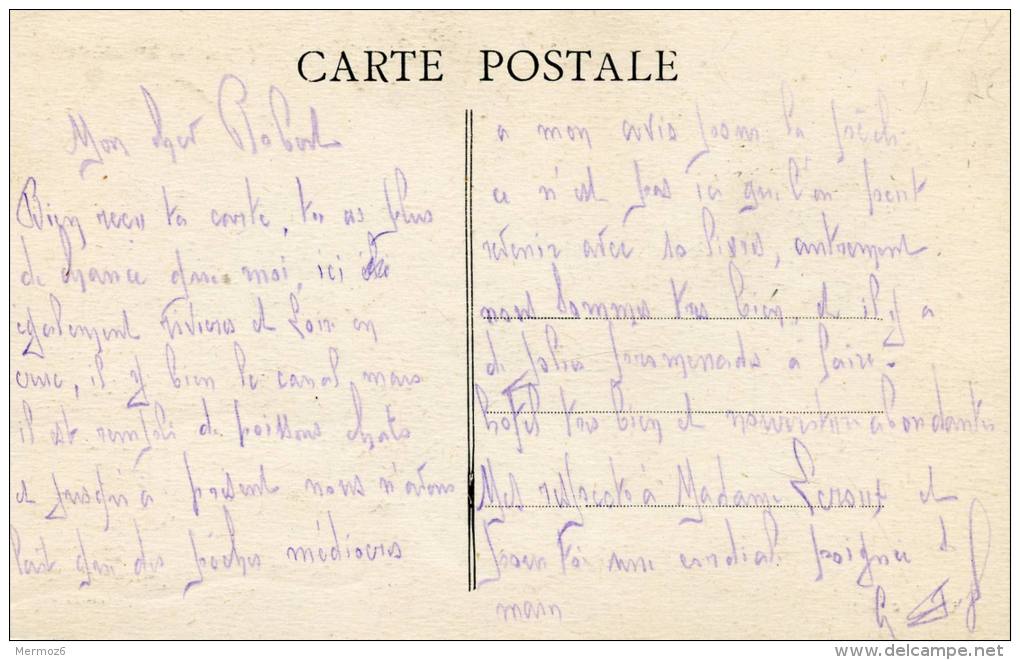 CARTE POSTALE
Mon cher Robert
Bien reçu ta carte, tu as plus
de chance que moi, ici
egalement rivieres et Loir en
crue, il y bien le canal mais
il est rempli de poissons chats
et jusqu'à présent nous n'avons
fait que des pêches médiocres
a mon avis pour la pêche
ce n'est pas ici que l'on peut
revenir avec 10 livres, autrement
nous sommes tres bien, et il y a
de jolies promenades à faire.
hotel tres bien et nourriture abondante
Mes respects à Madame Leroux et
pour toi une cordial poignée de
main
G.
Mermoz6
www.delcampe.net